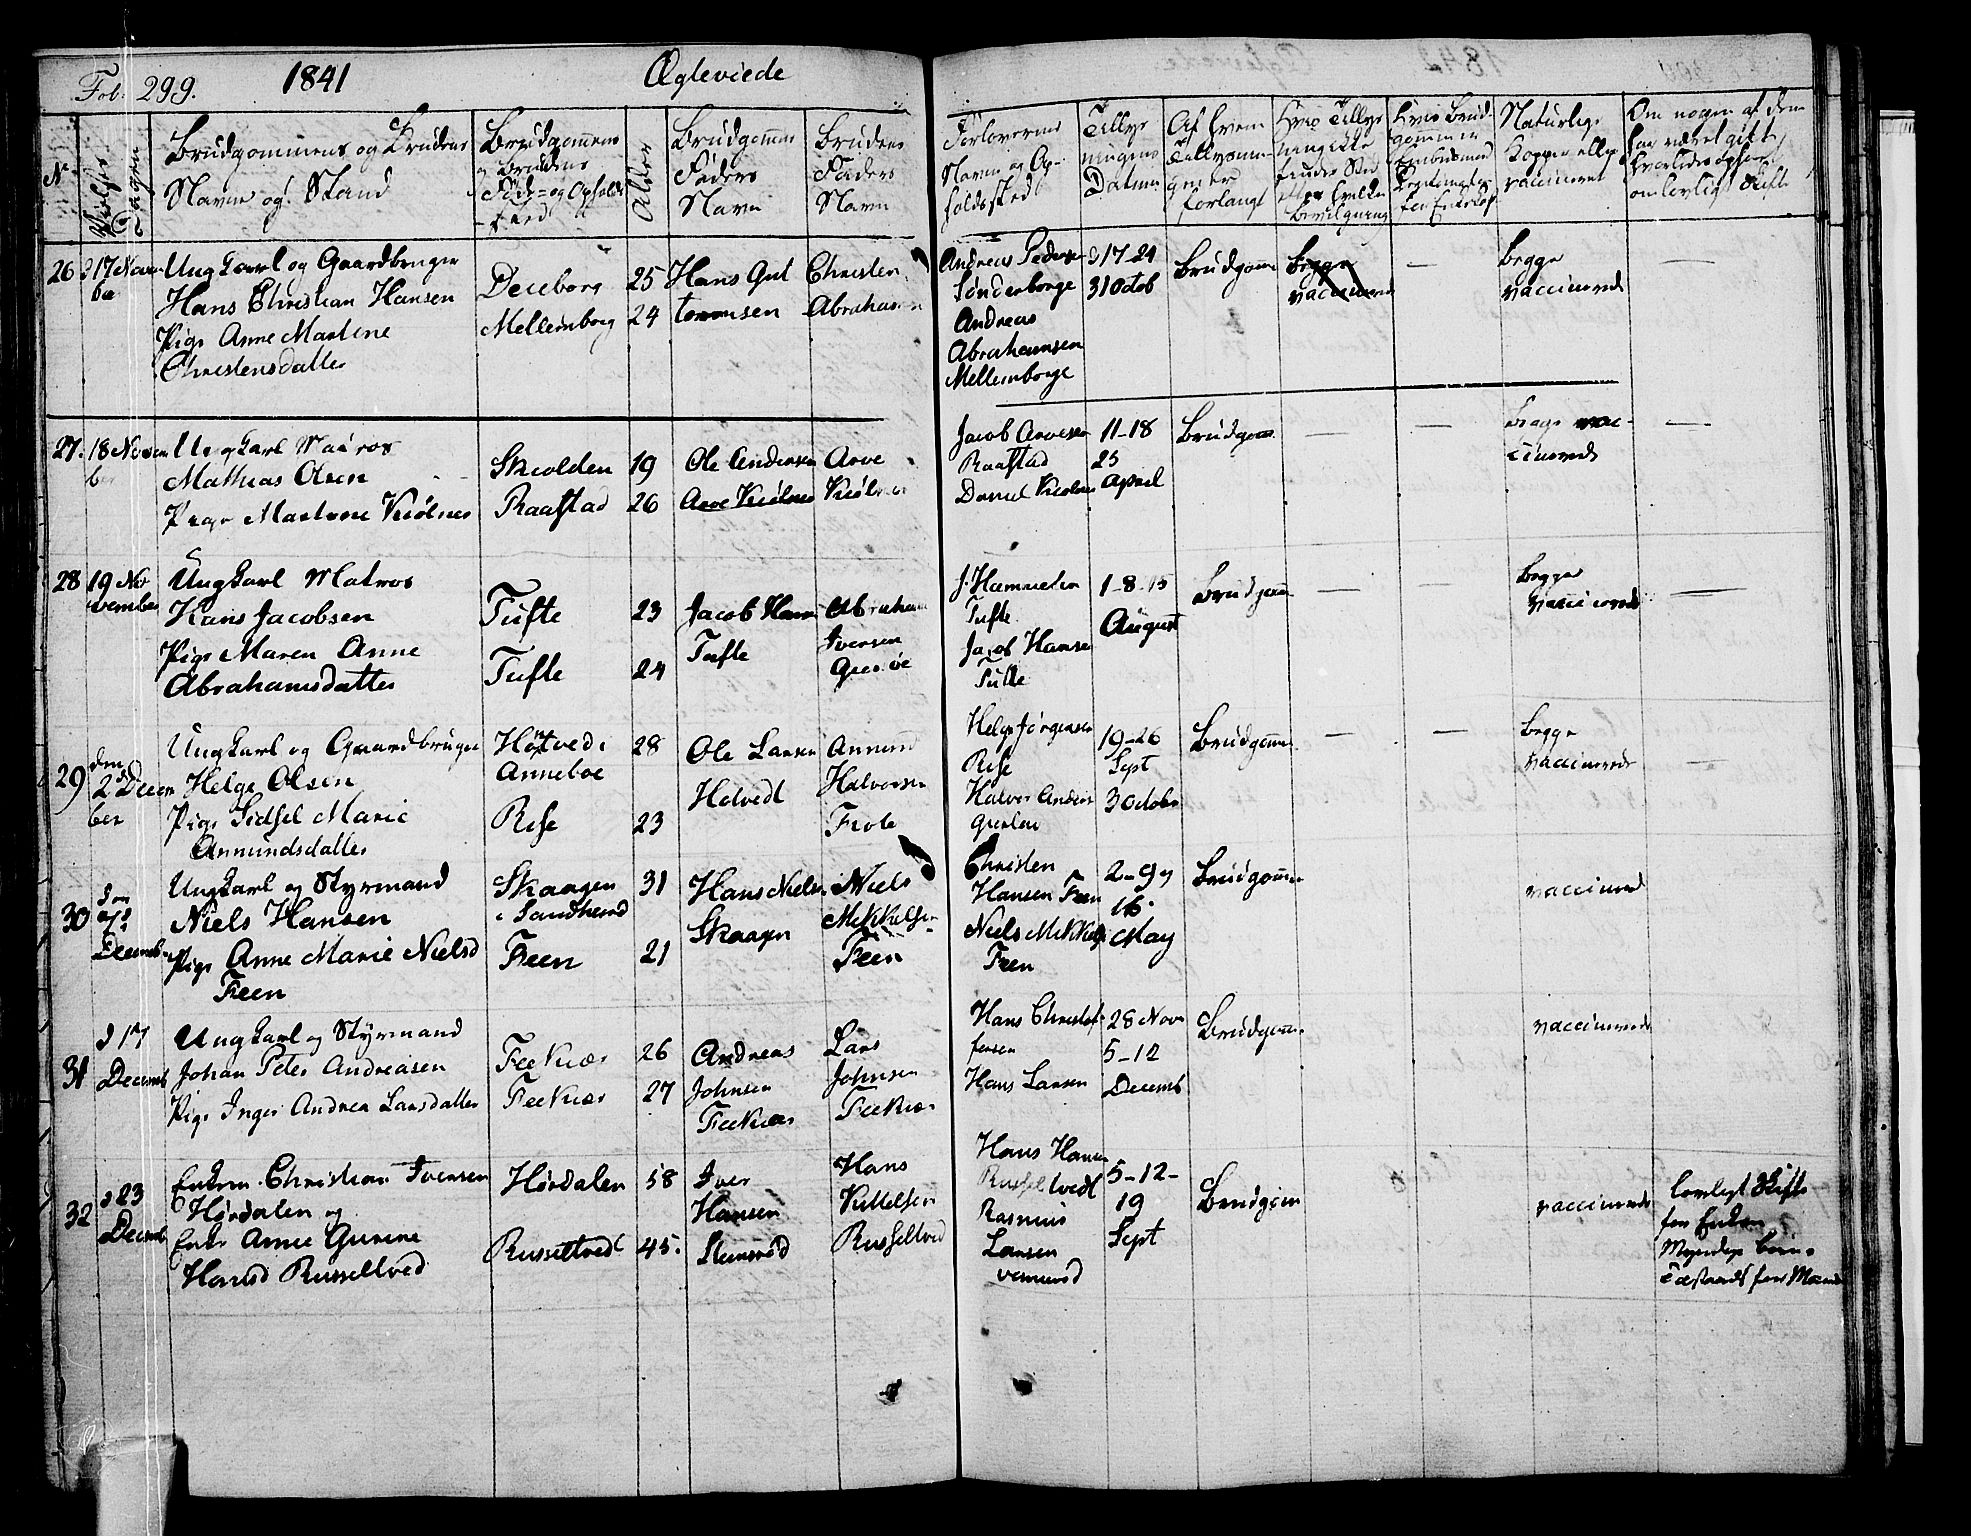 Fol. 299.
1841
Ægteviede
No
Vielses Dagen
Brudgommens og Brudens
Navn og Stand
Brudgommens
og Brudens
Føde- og Opholds
sted
Alder
Brudgommens
Faders
Navn
Brudens
Faders
Navn
Forlovernes
Navn og Op-
holdssted
Tillys
ningens
Datum
Af hvem
Tillysnin-
gen er
forlangt
Hvis Tillys
ningen ikke
Hvis Brud-
gommen
Naturlige
Kopper eller
vaccineret
Om nogen af dem
har været gift,
om lovligt Skifte
26
d 17 Novem
ber
Ungkarl og Gaardbruger
Hans Christian Hansen
Pige Anne Martine
Christensdatter
Mellemborg
25
24
Hans Gul
Christen
Abrahamsen
Andreas Pedersen
Sønderborge
Andreas
Abrahamsen
Mellemborge
d 17-24
31 Octob
Brudgom
Begge
vaccinerede
—
Begge
vaccinerede
—
27.
18 Novem
ber
Ungkarl Matros
Mathias Olsen
Pige Martine Kiølnes
Skiolden
Raastad
19
26
Ole Andersen
Arve Kiølnes
Arve
Kiølnes
Jacob Arvesen
Raastad
Daniel Kiolnes
11-18
25
April
Brudgom
—
—
Begge vac-
cinerede
—
28
19 No
vember
Ungkarl Matros
Hans Jacobsen
Pige Maren Anne
Abrahamsdatter
Tufte
Tufte
23
24
Jacob Hansen
Tufte
Abraham
Iversen
Tufte
Jacob Hansen
Tufte
1-8-15
August
Brudgom
—
—
Begge
vaccinerede
—
29
den
2d Decem
ber
Ungkarl og Gaardbruger
Helge Olsen
Pige Sidsel Marie
Anmundsdatter
Høntved i
Anneboe
Rise
28
23
Ole Larsen
Hotvedt
Anmund
Halvorsen
Helge Jörgensen
Rise
Halvor Anders
19-26
Sept
3 Octobr
Brudgom
—
—
Begge
vaccinerede
—
30
Decemb
Ungkarl og Styrmand
Niels Hansen
Pige Anne Marie Nielsd
Feen
Skaagen
i Sandherred
Feen
31
21
Hans Nielsen
Skaagen
Niels
Mikkelsen
Feen
Christen
Hansen Feen
Niels Mikkels
Feen
2-9 og
16
May
Brudgom
vaccinered
31
d 17
Decemb
Ungkarl og Styrmand
Johan Peter Andreasen
Pige Inger Andrea Larsdatter
Feekiær
Feekiær
26
27
Andreas
Johnsen
Feekiær
Lars
Johnsen
Feekiær
Hans Christof-
fersen
Hans Larsen
28 Nov
5-12
Decemb
Brudgom
vaccinerede
32
d 23
Decemb
Enkem. Christian Iversen
Hørdalen og
Enke Anne Gurine
Hansd Russeltved
Hørdalen
Russeltved
58
45.
Iver
Hansen
Hans
Kittelsen
Russeltved
Hans Hansen
Russeltvedt
Rasmus
Larsen
5-12-
19
Sept
Brudgom
vaccinerede
lovligt Skifte
for Enken
Myndige Børn